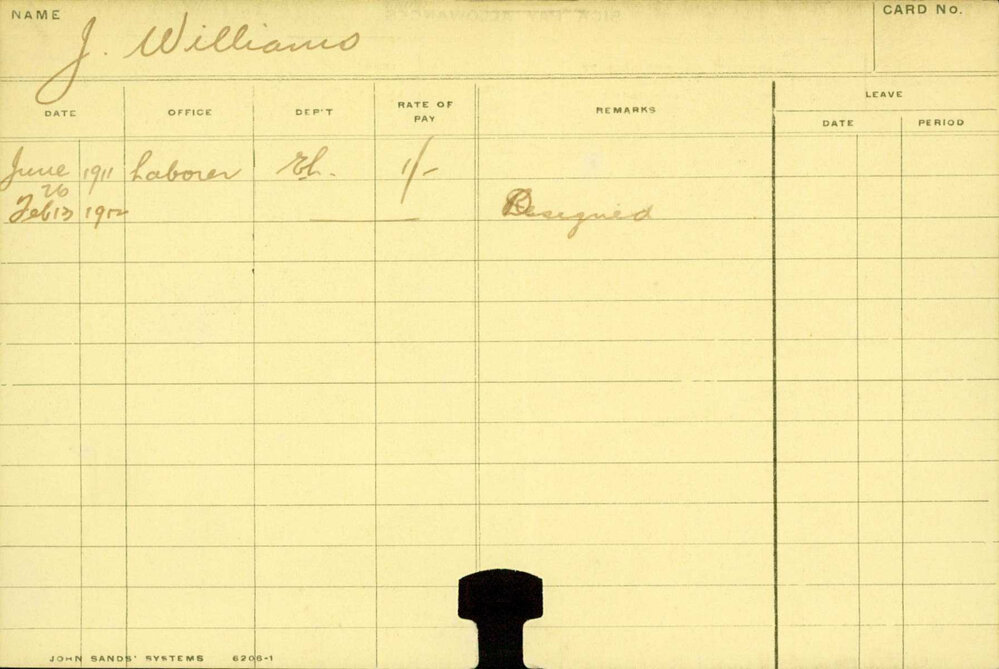 NAME
CARD No.
J. Williams
DATE OFFICE DEP'T RATE OF PAY REMARKS LEAVE
DATE PERIOD
June 1911 Laborer 1/-
26
Feb 13 1912 Resigned
JOHN SANDS' SYSTEMS 6206-1